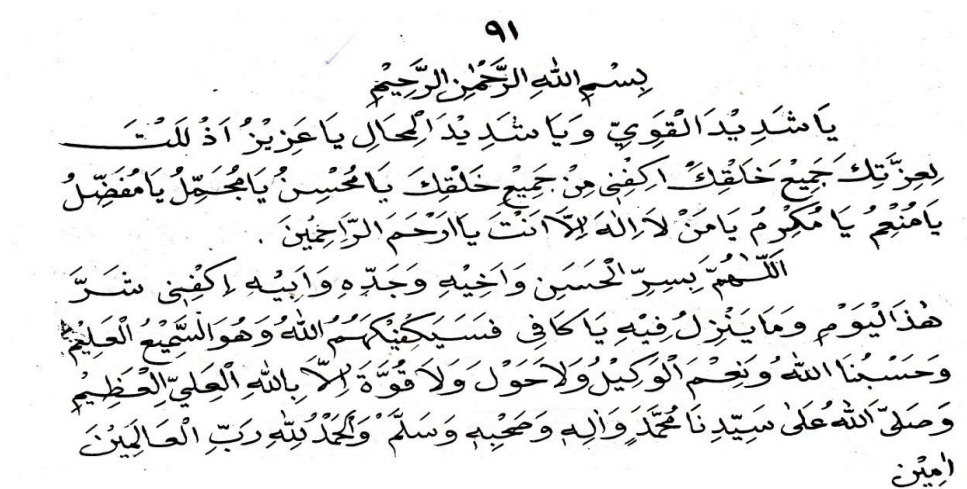 ٩١
بِسْمِ اللهِ الرَّحْمٰنِ الرَّحِيْمِ
يَا شَدِيْدَ الْقَوِيِّ وَيَا شَدِيْدَ الْمِحَالِ يَا عَزِيْزُ اَذْ لَلْتَ
لِعِزَّتِكَ جَمِيْعَ خَلَقْكَ اكِفْنِى مِنْ جَمِيْعِ خَلْقِكَ يَا مُحْسِنُ يَا مُجَمِّلُ يَا مُفَضِّلُ
يَا مُنْعِمُ يَا مُكْرِمُ يَا مَنْ لَا اِلٰهَ اِلَّا اَنْتَ يَا اَرْحَمَ الرَّاحِمِيْنَ .
اَللّٰهُمَّ بِسِرِّ الْحَسَنِ وَاَخِيْهِ وَجَدِّهِ وَاَبِيْهِ اِكْفِنِى شَرَّ
هٰذَ الْيَوْمِ وَمَا يَنْزِلُ فِيْهِ يَا كَافِى فَسَيَكْفِيْكَهُمُ اللهُ وَهُوَ السَّمِيْعُ الْعَلِيْمُ
وَحَسْبُنَا اللهُ وَنِعْمَ الْوَكِيْلُ وَلَا حَوْلَ وَلَا قُوَّةَ اِلَّا بِاللهِ الْعَلِيِّ الْعَظِيْمِ
وَصَلَّى اللهُ عَلٰى سَيِّدِنَا مُحَمَّدٍ وَاٰلِهِ وَصَحْبِهِ وَسَلَّمْ وَالْحَمْدُ لِلّٰهِ رَبِّ الْعَالَمِيْنَ
اٰمِيْن